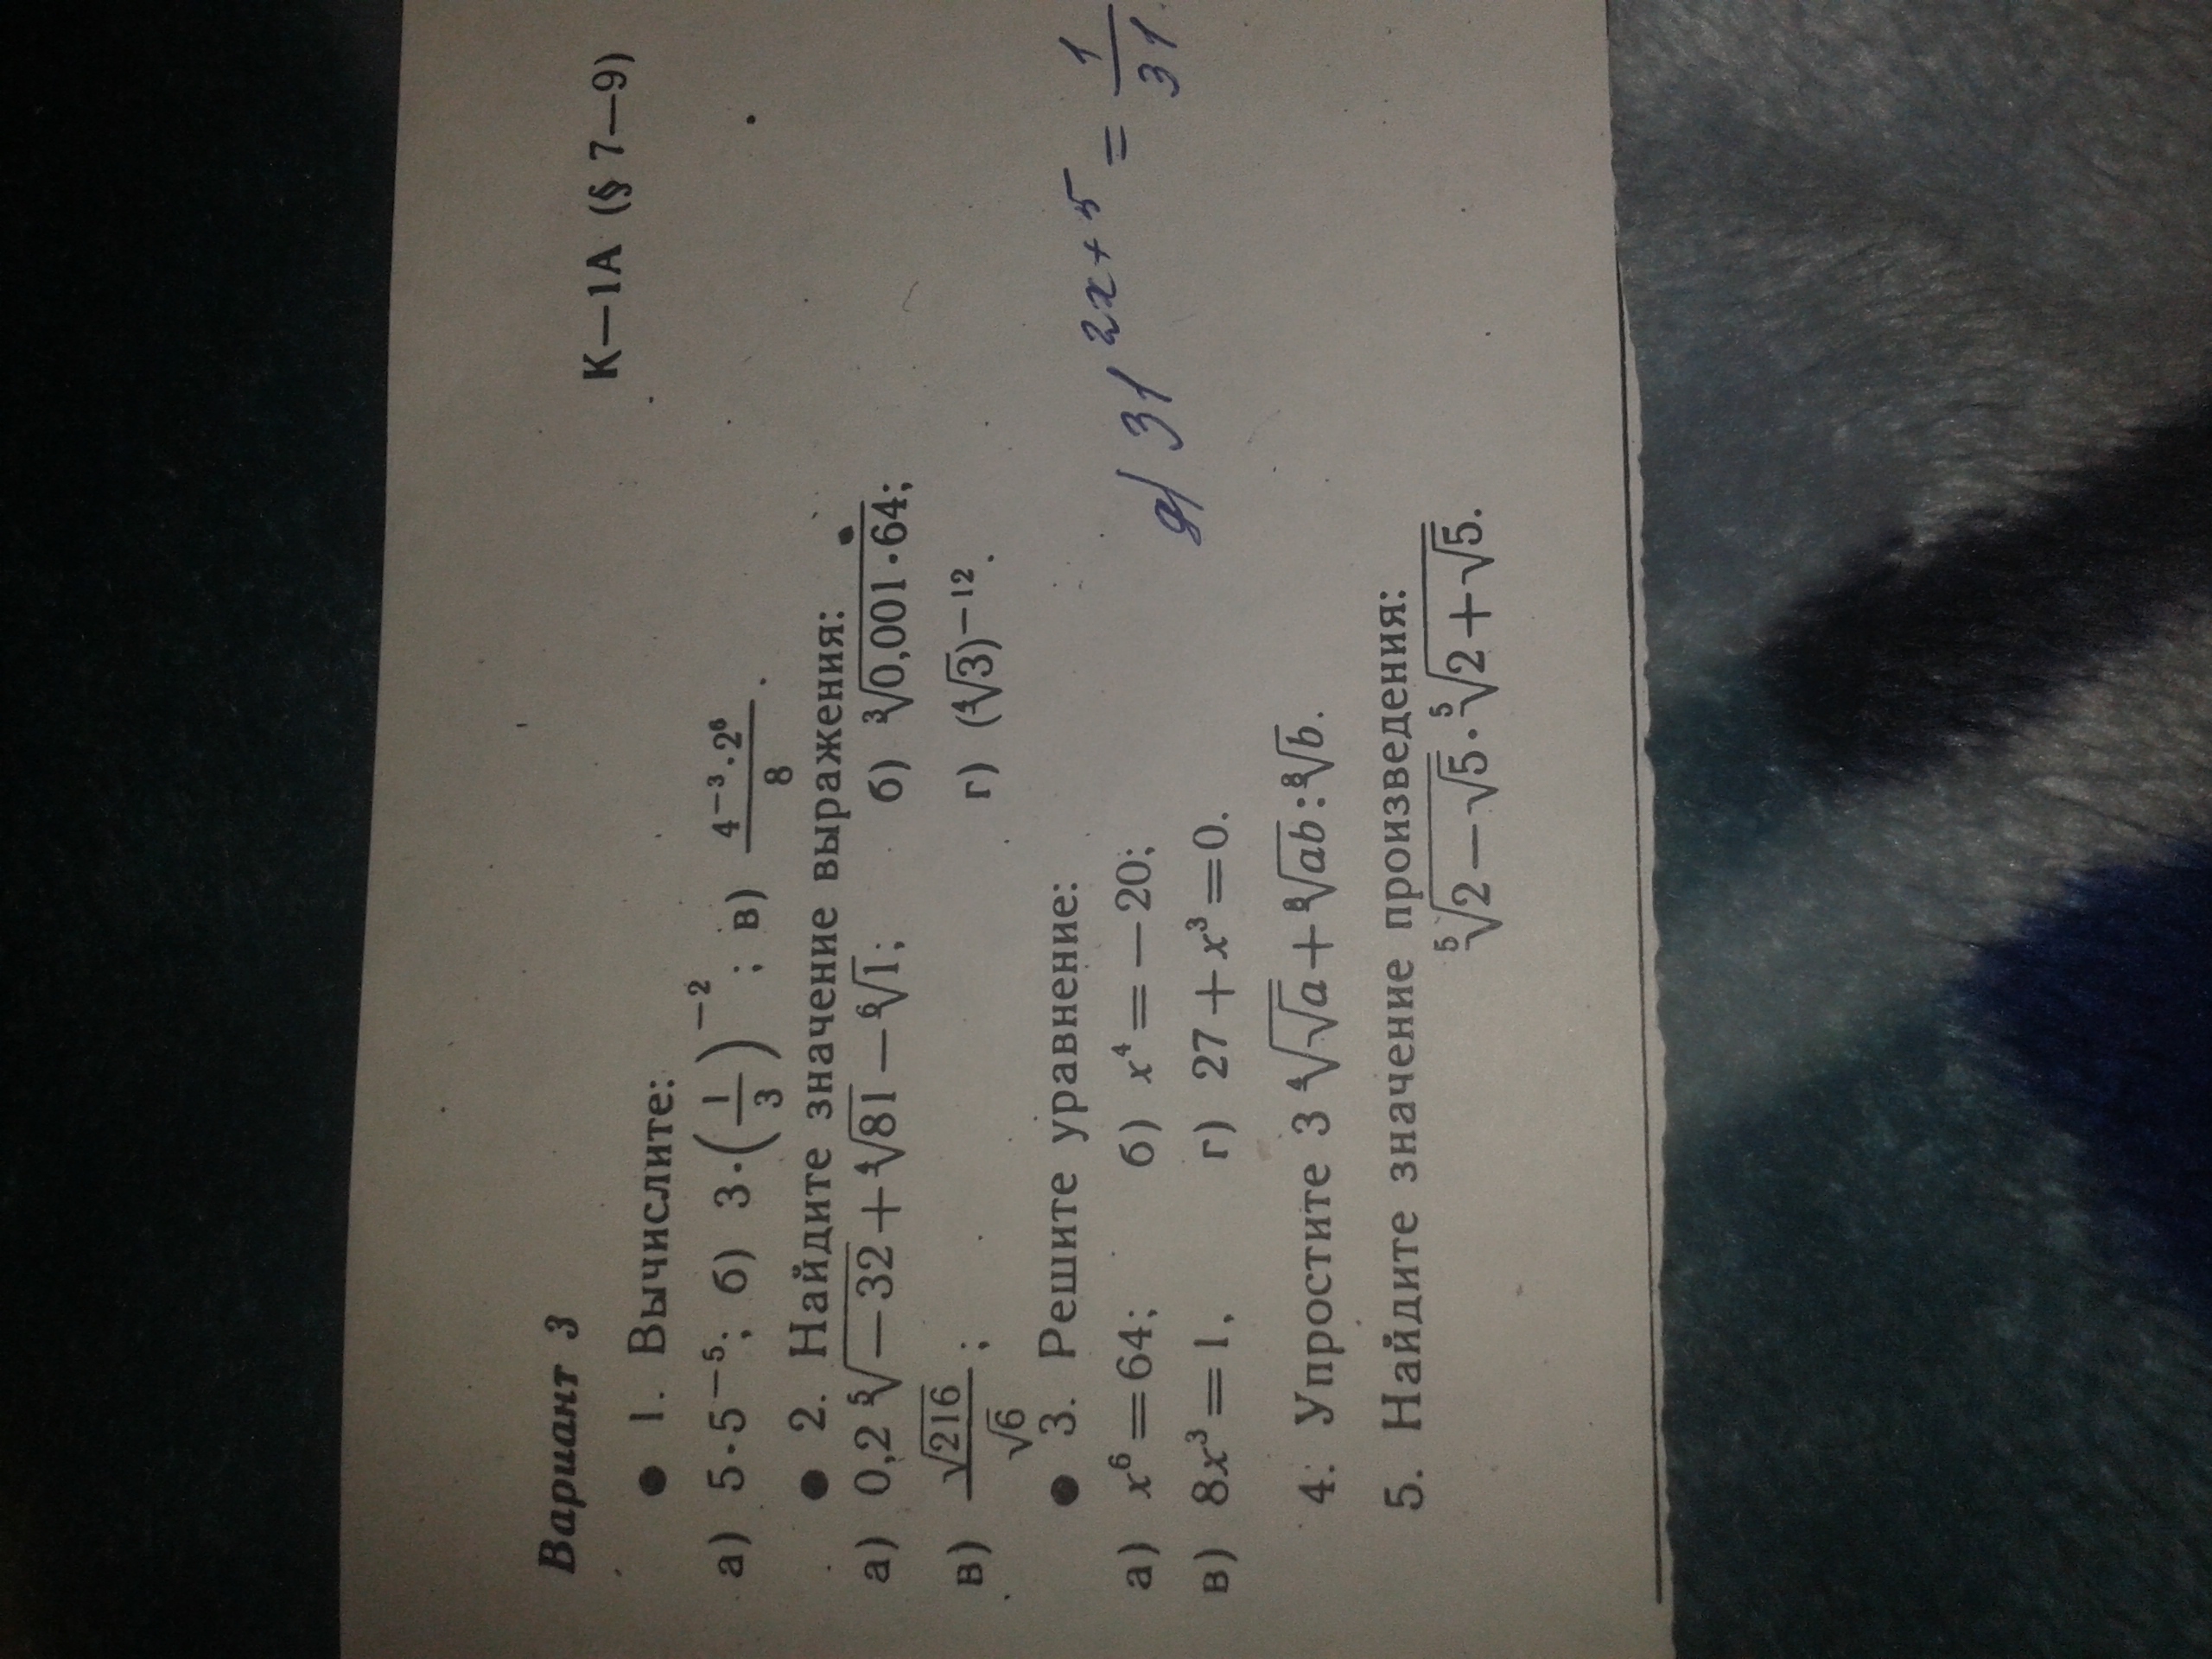 К—1А (§ 7—9)
Вариант 3
● 1. Вычислите:
а) 5·5⁻⁵; б) 3·(1/3)⁻²; в) (4⁻³·2⁶)/8.
● 2. Найдите значение выражения:
а) 0,2 ⁵√(−32) + ⁴√81 − ⁶√1; б) ³√(0,001·64);
в) √216/√6; г) (⁴√3)⁻¹².
● 3. Решите уравнение:
а) x⁶=64; б) x⁴=−20; д) 31^(2x+5) = 1/31.
в) 8x³=1, г) 27+x³=0.
4. Упростите 3 ⁴√(√a) + ⁸√(ab) : ⁸√b.
5. Найдите значение произведения:
⁵√(2−√5) · ⁵√(2+√5).